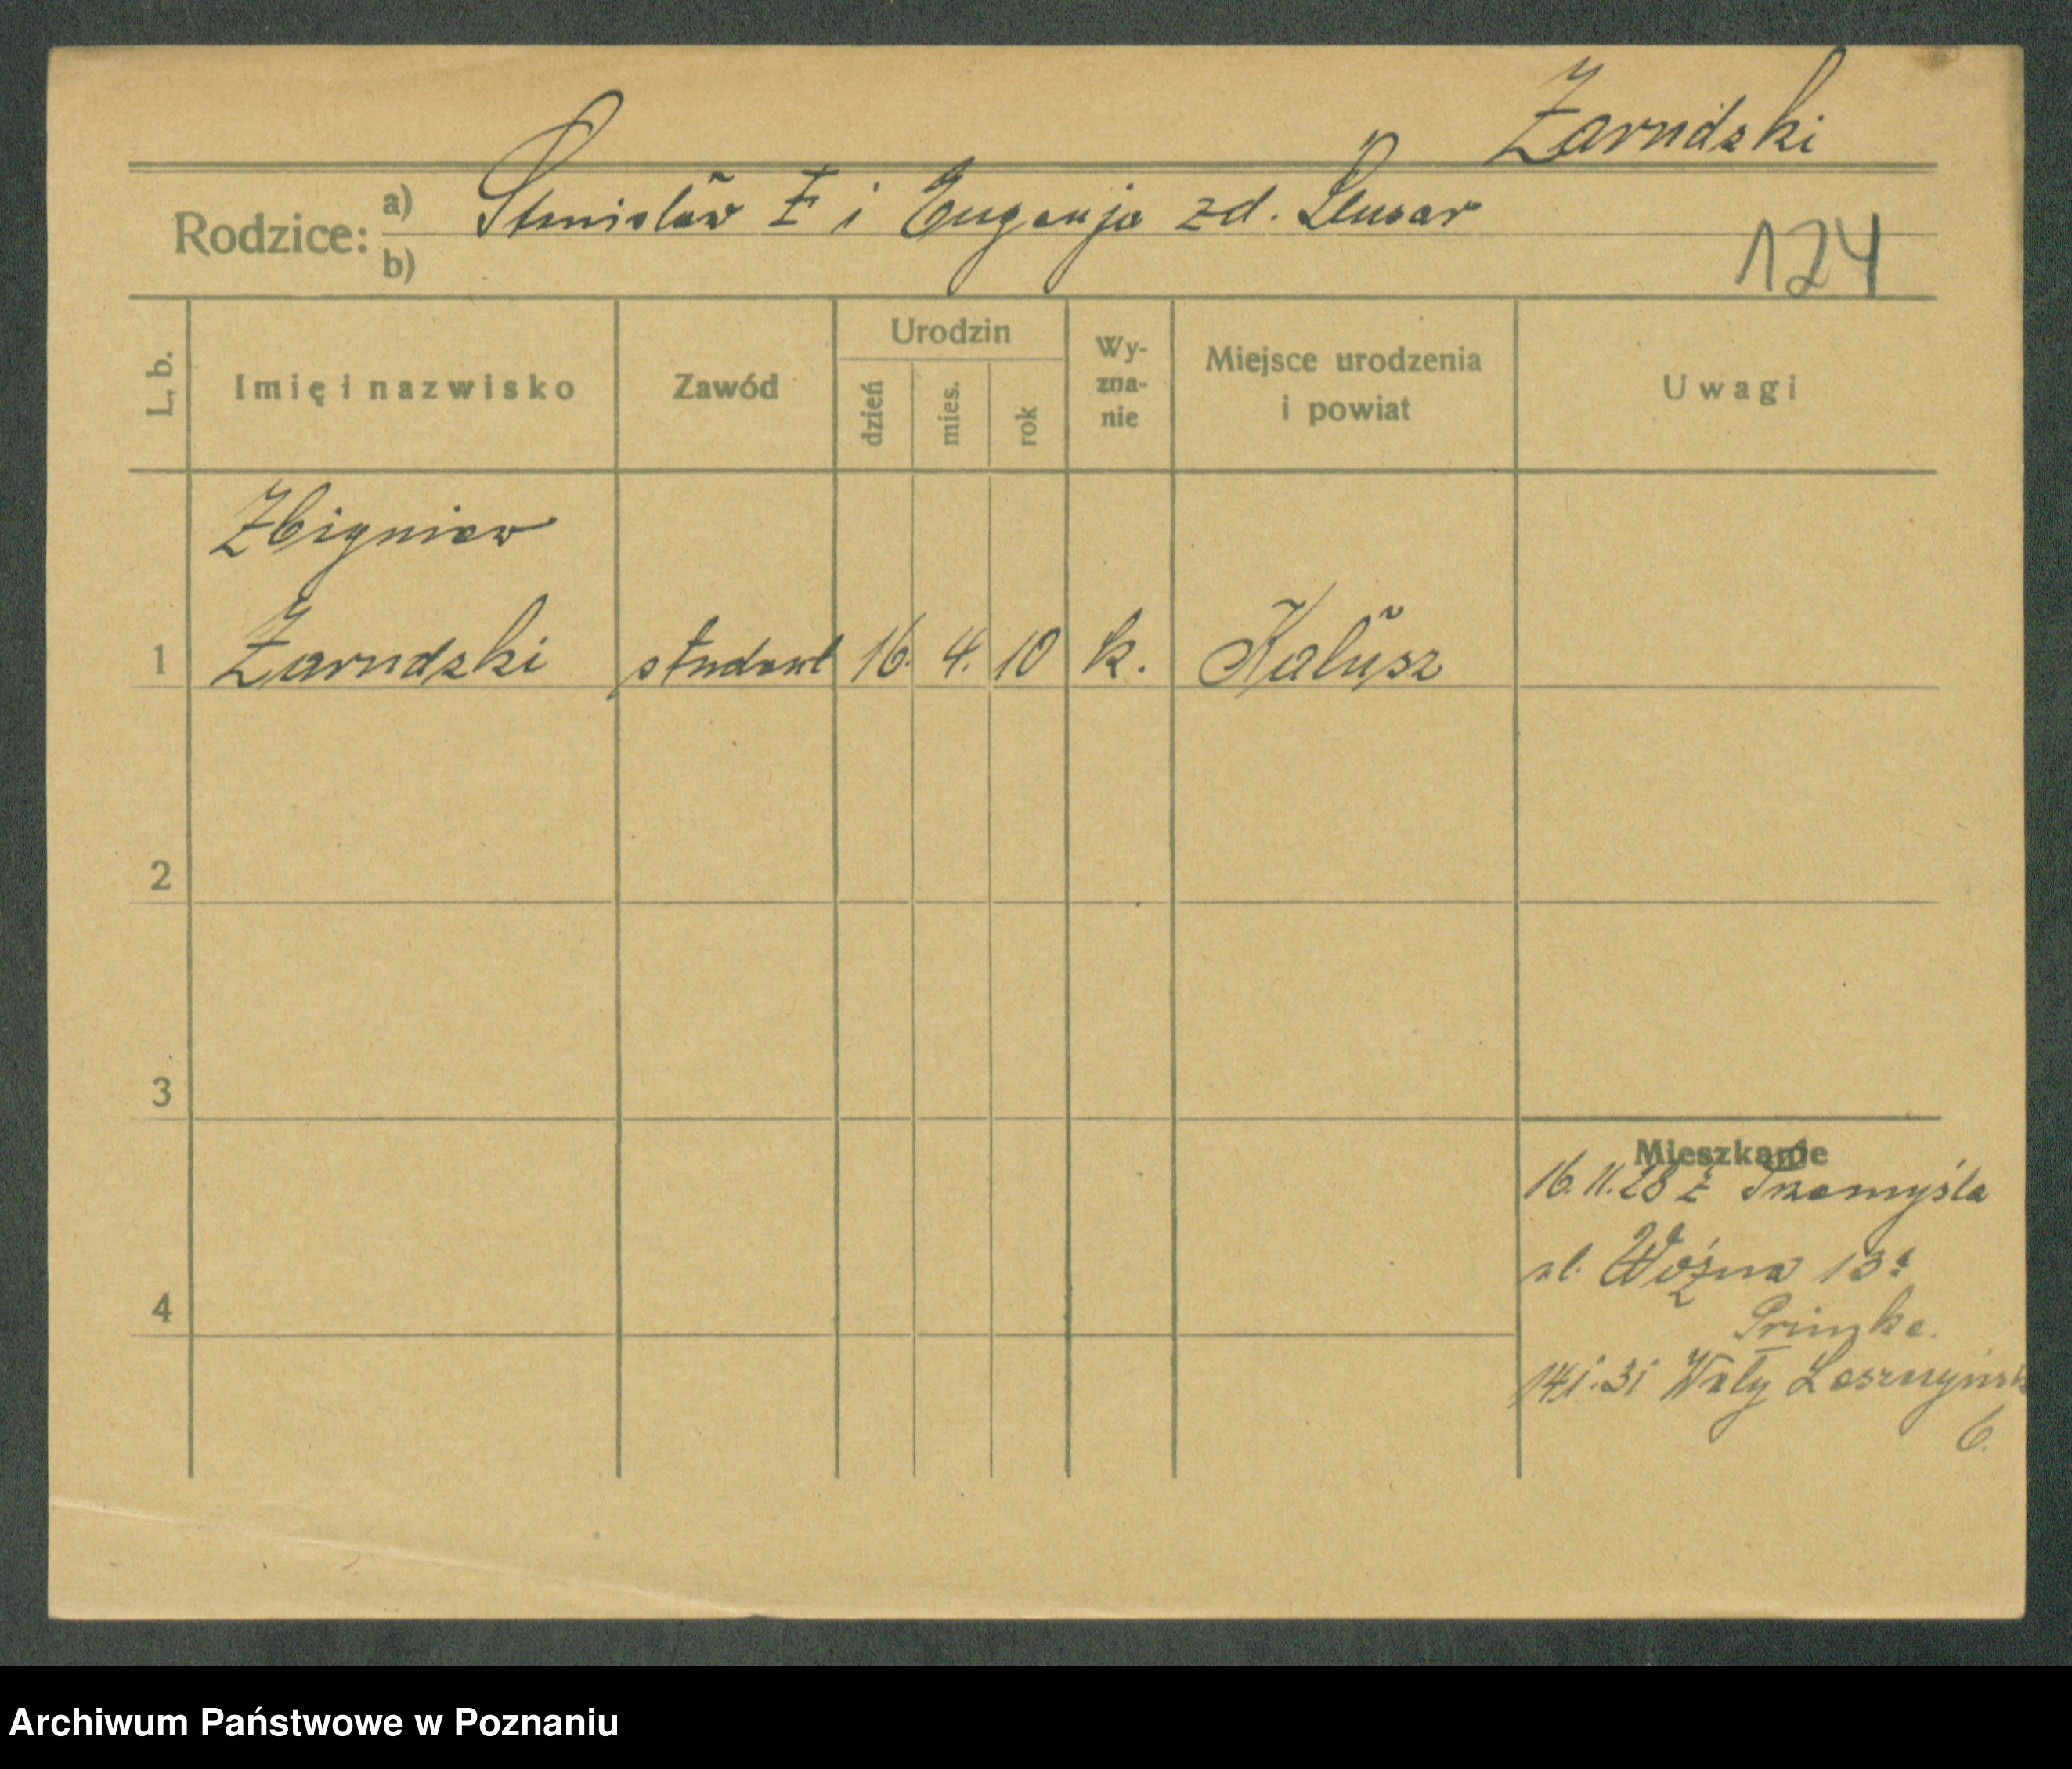 Żarudzki
Rodzice: a) Stanisław Ż i Eugenja zd.
b)
124
L. b.
Imię i nazwisko
Zawód
Urodzin
dzień
mies.
rok
Wy-
zna-
nie
Miejsce urodzenia
i powiat
Uwagi
Zbigniew
1 Żarudzki student 16. 4. 10 k. Kałusz
2
3
4
Mieszkanie
16.11.28 z Przemyśla
ul. Woźna 13a
14.1.31 Wały Leszczyńsk
6.
Archiwum Państwowe w Poznaniu